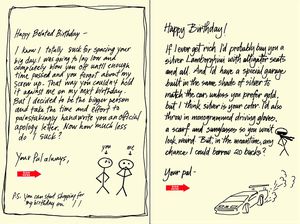 Happy Belated Birthday -
I know I totally suck for spacing your
big day. I was going to lay low and
completely blow you off until enough
time passed and you forgot about my
screw up. That way you couldn't hold
it against me on my next birthday.
But I decided to be the bigger person
and take the time and effort to
painstakingly handwrite you an official
apology letter. Now how much less
do I suck?
Your Pal always,
you
me
P.S. You can start shopping for
my birthday on
Happy Birthday!
If I ever got rich I'd probably buy you a
silver Lamborghini with alligator seats
and all. And I'd have a special garage
built in the same shade of silver to
match the car unless you prefer gold,
but I think silver is your color. I'd also
throw in monogrammed driving gloves,
a scarf and sunglasses so you won't
look weird. But, in the meantime, any
chance I could borrow 20 bucks?
Your pal -